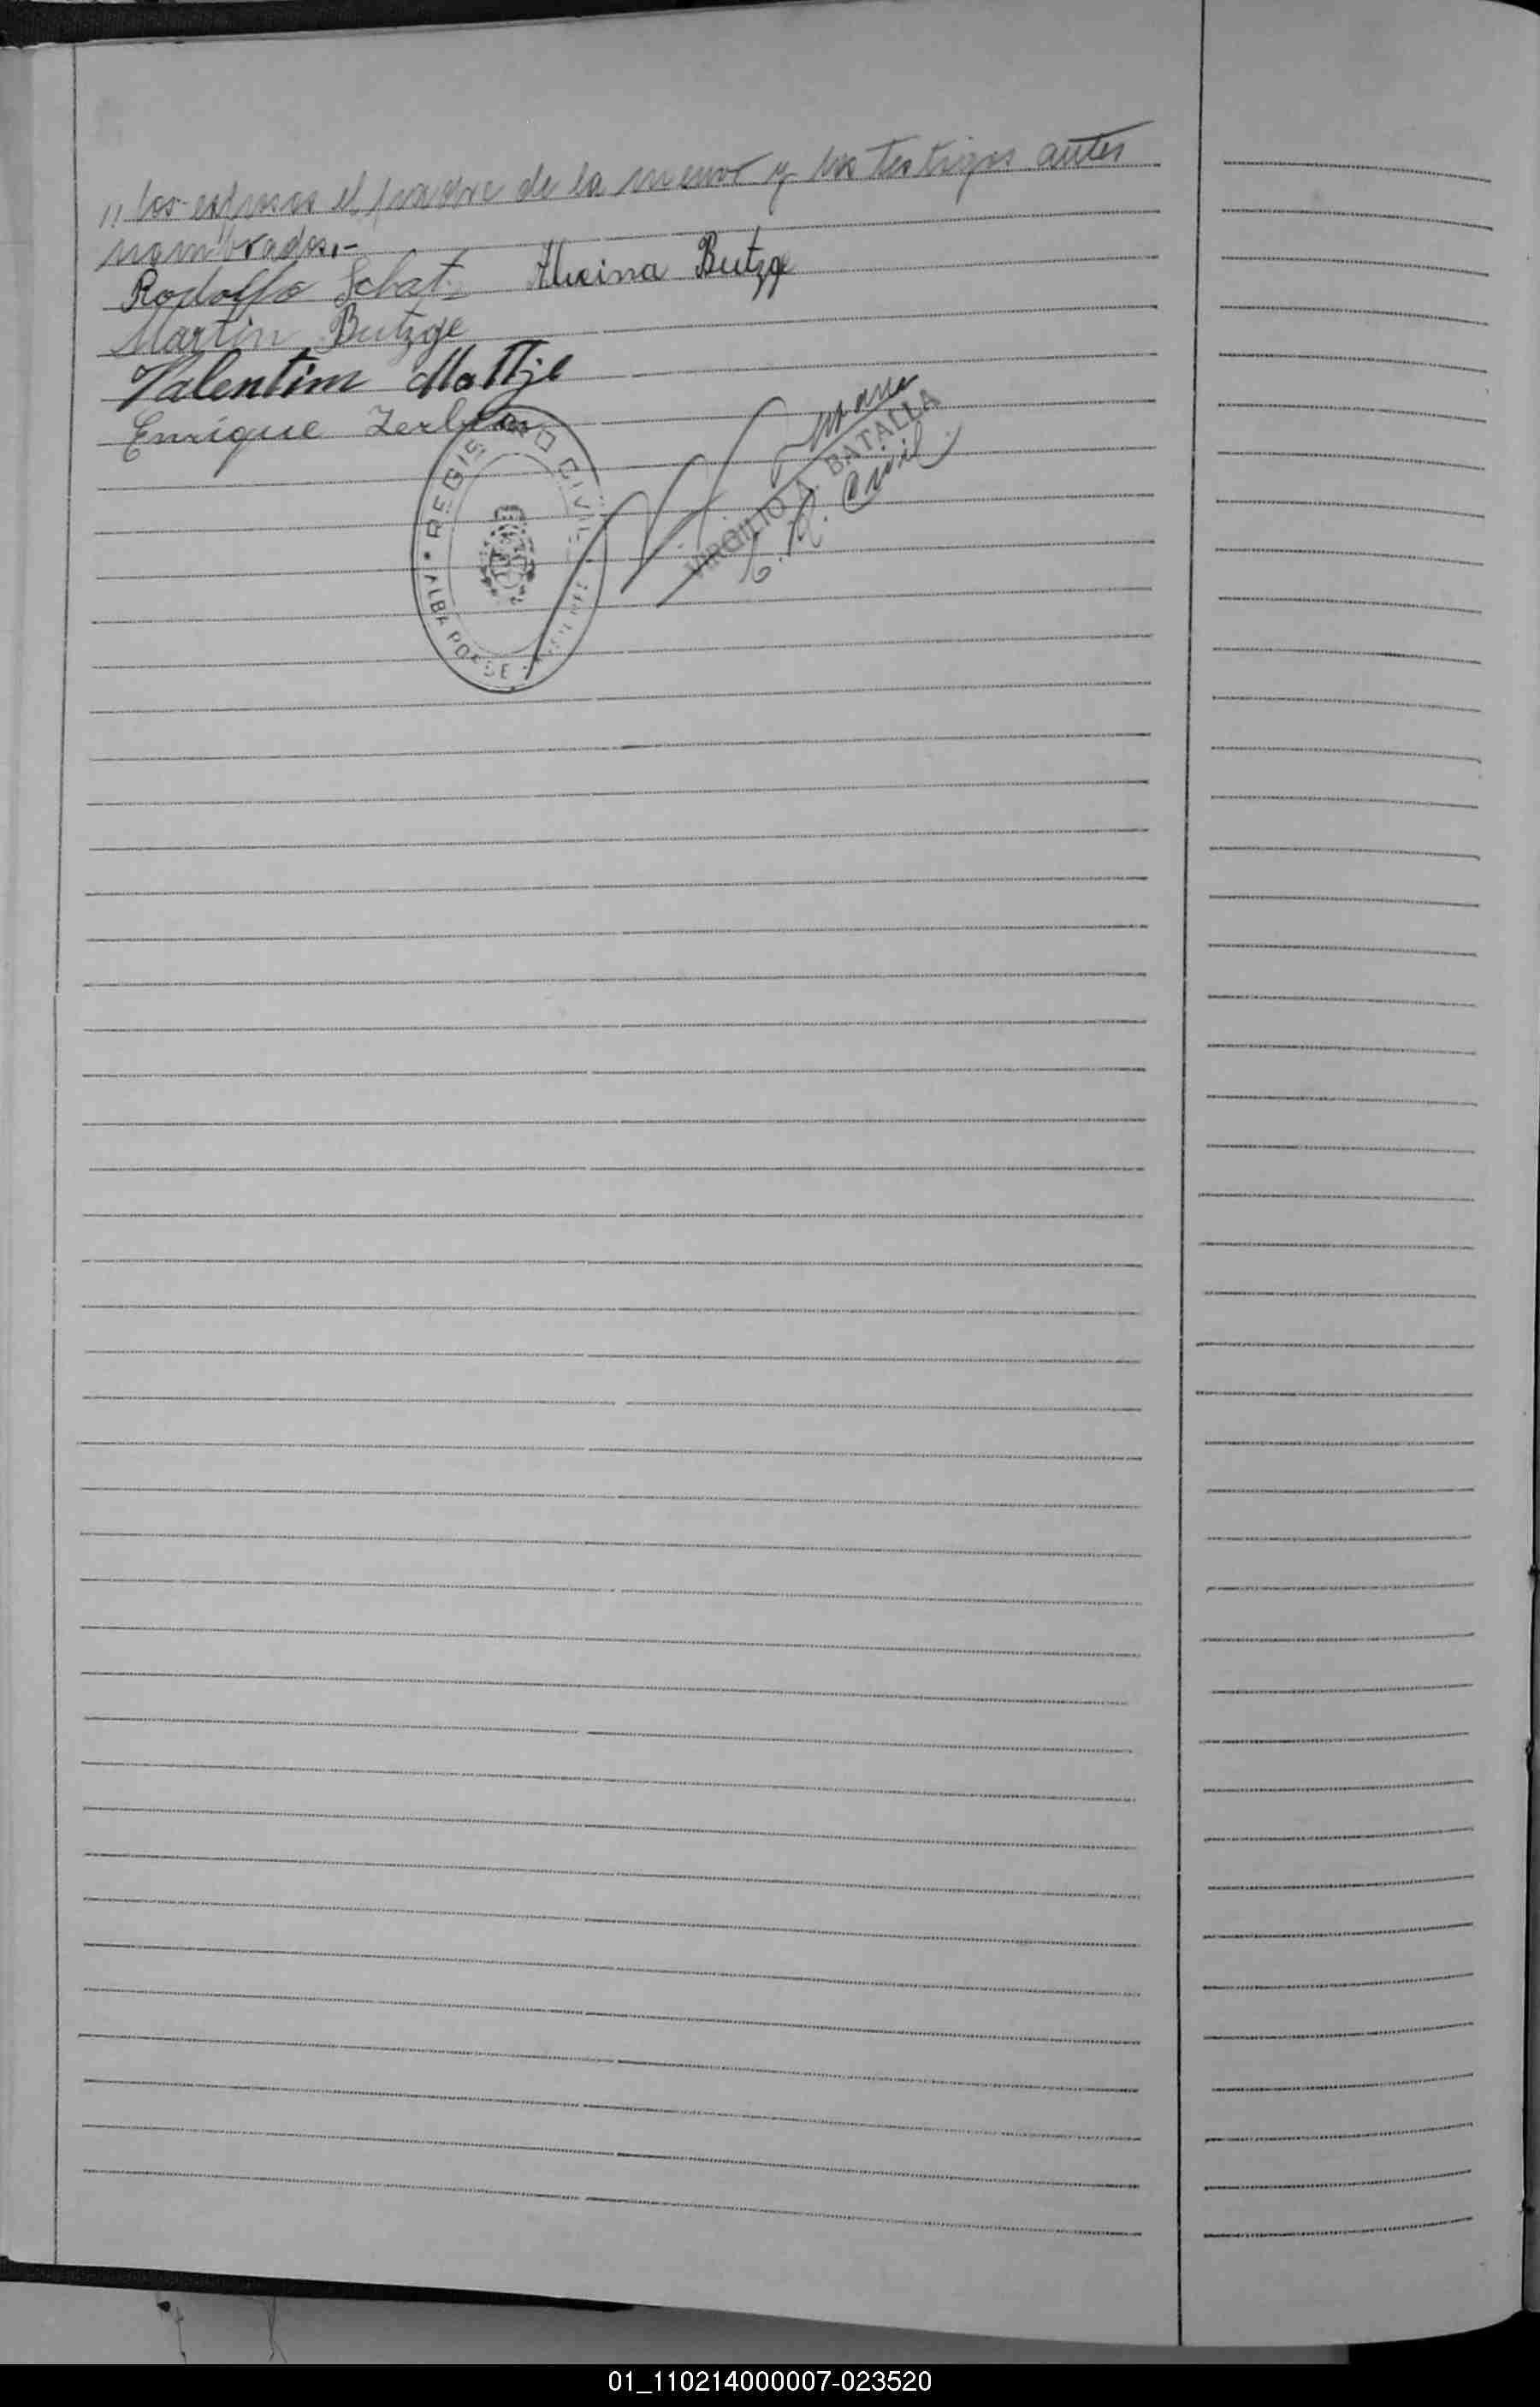 // los esposos el padre de la menor y los testigos antes
nombrados.-
Rodolfo Schat Alvina Butzge
Martin Butzge
Valentim Mattje
Enrique
REGISTRO CIVIL
ALBA POSSE
VIRGILIO A. BATALLA
E. R. Civil
01_110214000007-023520